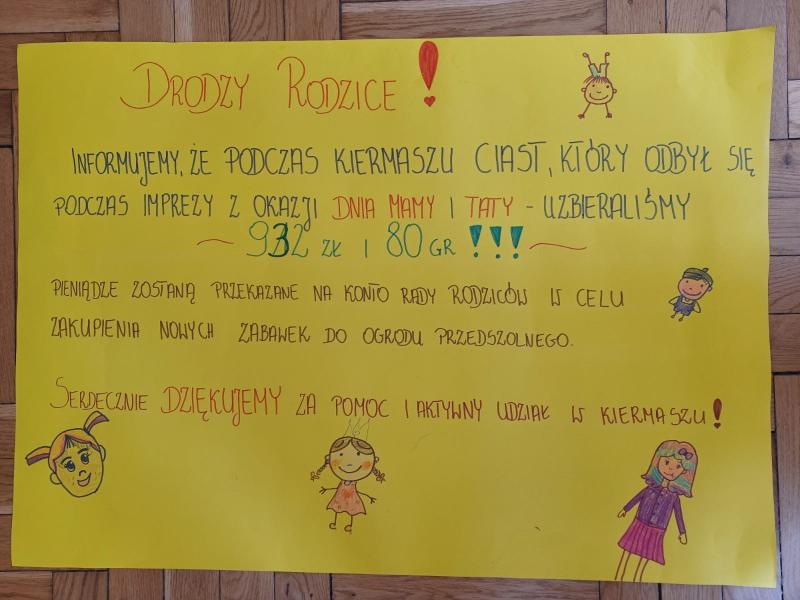 DRODZY RODZICE!
INFORMUJEMY, ŻE PODCZAS KIERMASZU CIAST, KTÓRY ODBYŁ SIĘ
PODCZAS IMPREZY Z OKAZJI DNIA MAMY I TATY - UZBIERALIŚMY
~ 932 ZŁ I 80 GR !!! ~
PIENIĄDZE ZOSTANĄ PRZEKAZANE NA KONTO RADY RODZICÓW W CELU
ZAKUPIENIA NOWYCH ZABAWEK DO OGRODU PRZEDSZOLNEGO.
SERDECZNIE DZIĘKUJEMY ZA POMOC I AKTYWNY UDZIAŁ W KIERMASZU!